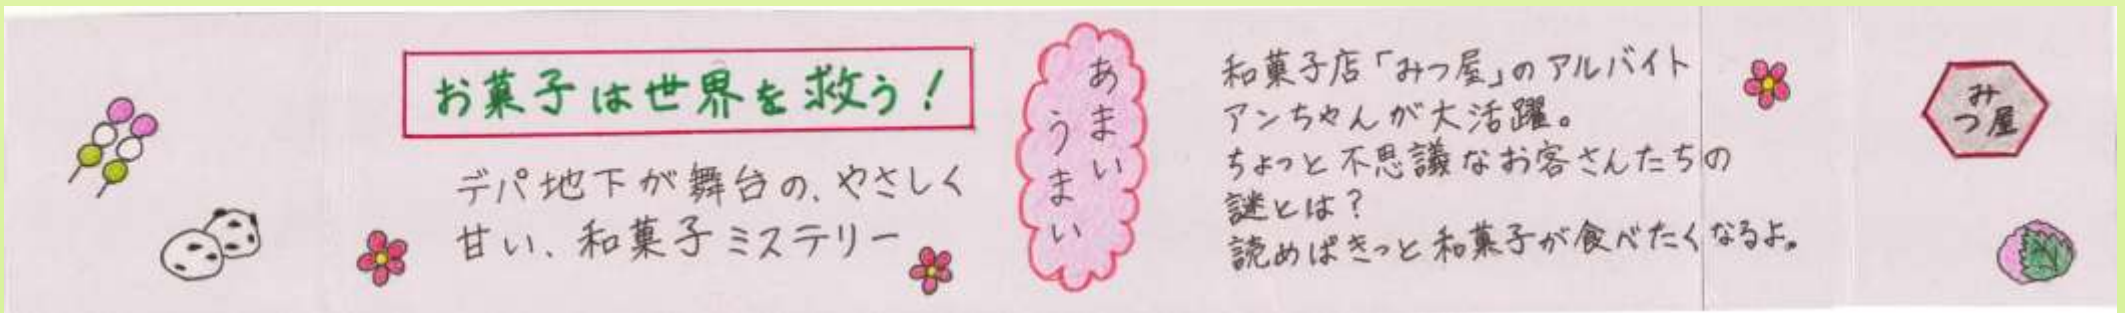 お菓子は世界を救う！
デパ地下が舞台の、やさしく
甘い、和菓子ミステリー
あまい
うまい
和菓子店「みつ屋」のアルバイト
アンちゃんが大活躍。
ちょっと不思議なお客さんたちの
謎とは？
読めばきっと和菓子が食べたくなるよ。
み
つ屋